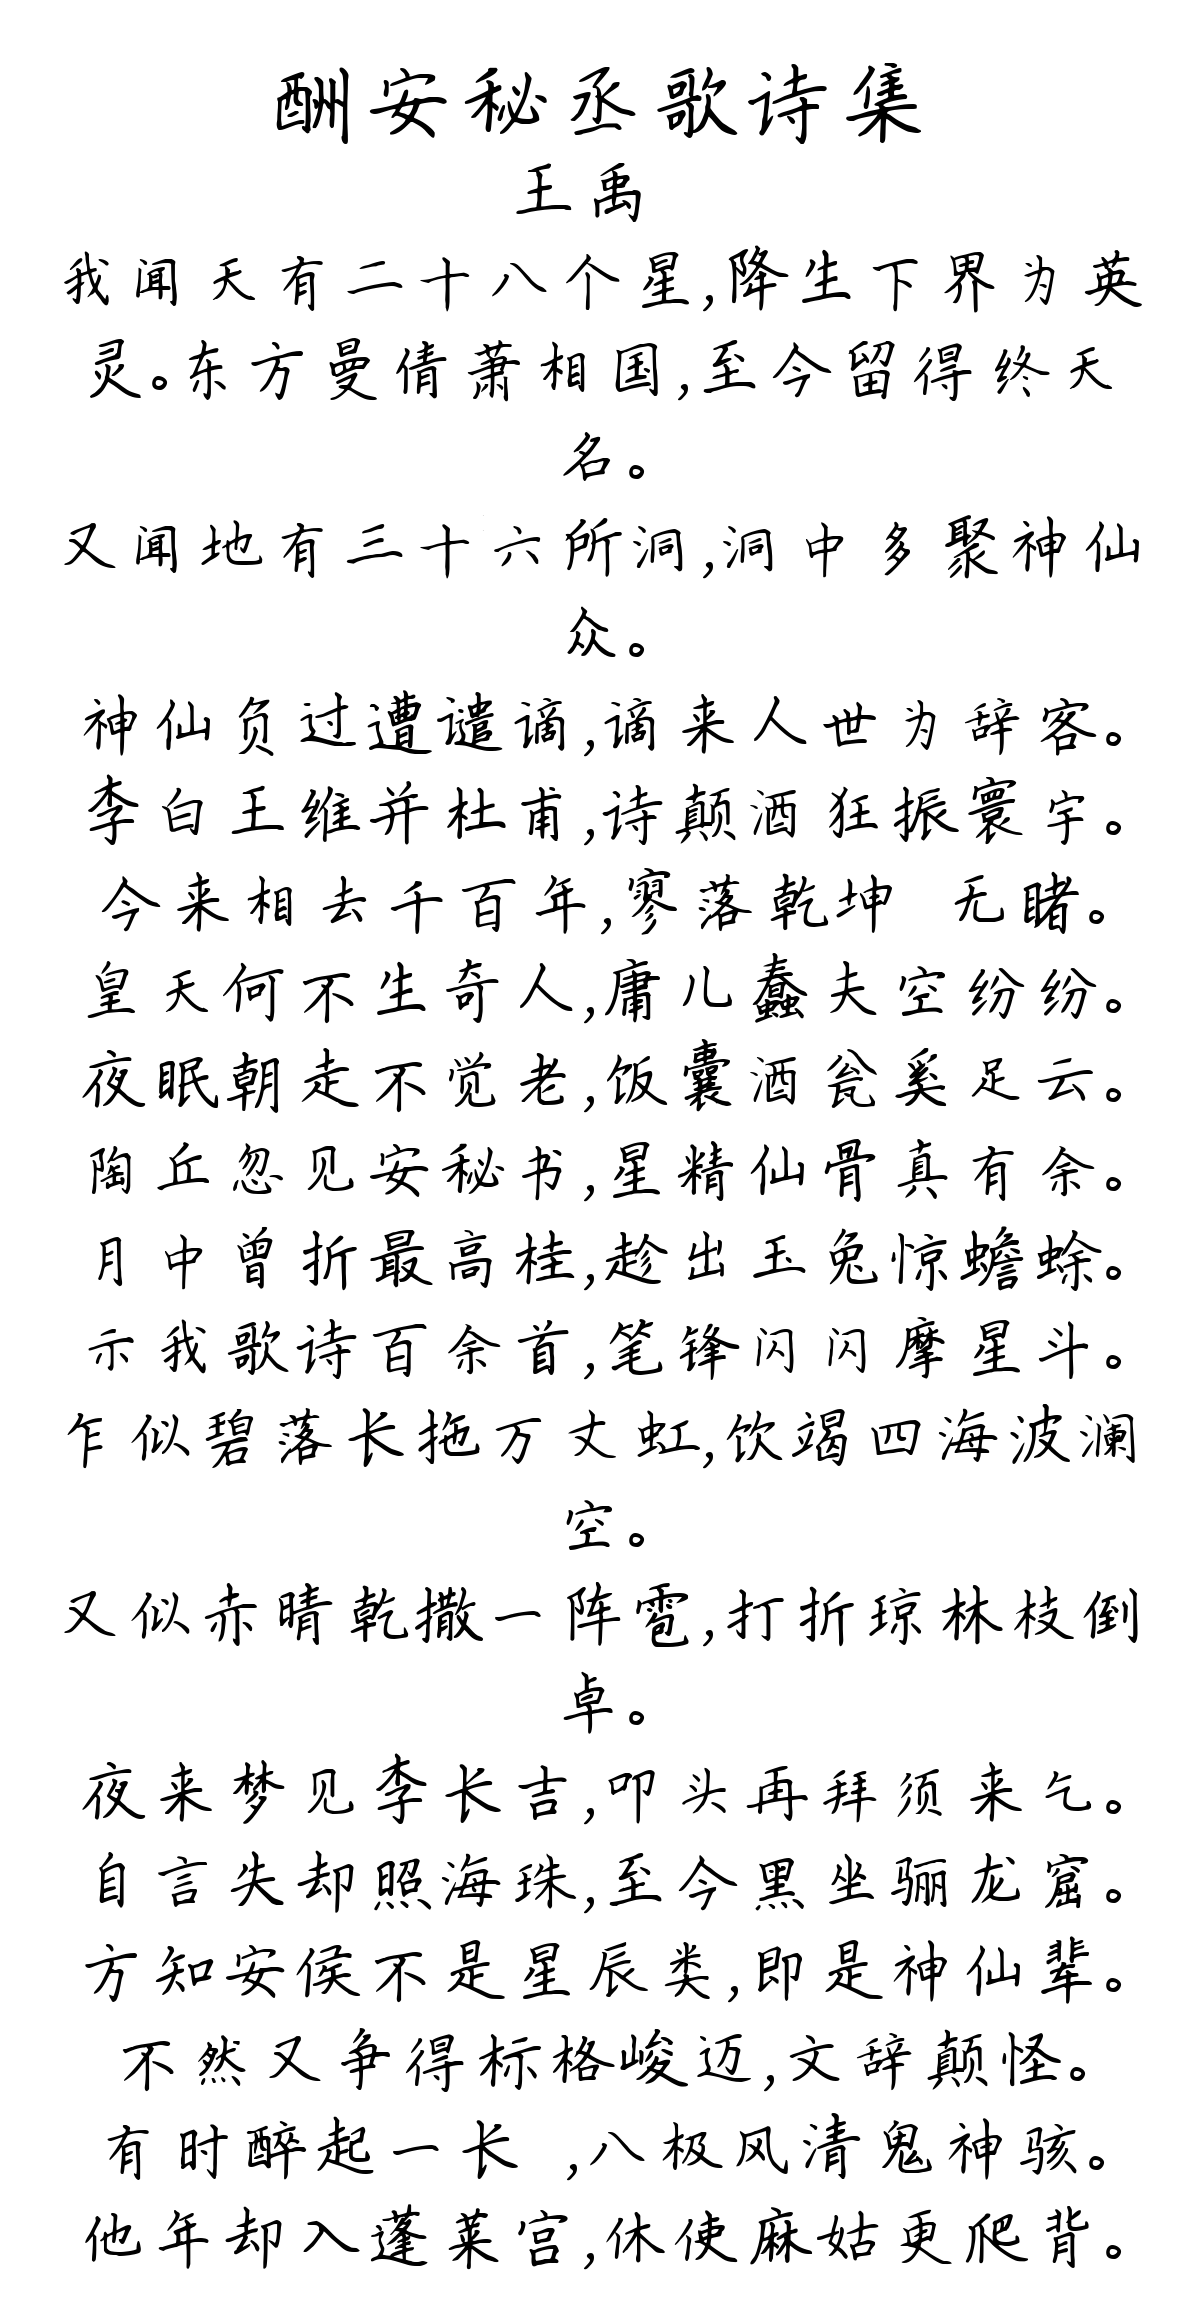 酬安秘丞歌诗集
王禹
我闻天有二十八个星,降生下界为英
灵。东方曼倩萧相国,至今留得终天
名。
又闻地有三十六所洞,洞中多聚神仙
众。
神仙负过遭谴谪,谪来人世为辞客。
李白王维并杜甫,诗颠酒狂振寰宇。
今来相去千百年,寥落乾坤 无睹。
皇天何不生奇人,庸儿蠢夫空纷纷。
夜眠朝走不觉老,饭囊酒瓮奚足云。
陶丘忽见安秘书,星精仙骨真有余。
月中曾折最高桂,趁出玉兔惊蟾蜍。
示我歌诗百余首,笔锋闪闪摩星斗。
乍似碧落长拖万丈虹,饮竭四海波澜
空。
又似赤晴乾撒一阵雹,打折琼林枝倒
卓。
夜来梦见李长吉,叩头再拜须来乞。
自言失却照海珠,至今黑坐骊龙窟。
方知安侯不是星辰类,即是神仙辈。
不然又争得标格峻迈,文辞颠怪。
有时醉起一长 ,八极风清鬼神骇。
他年却入蓬莱宫,休使麻姑更爬背。